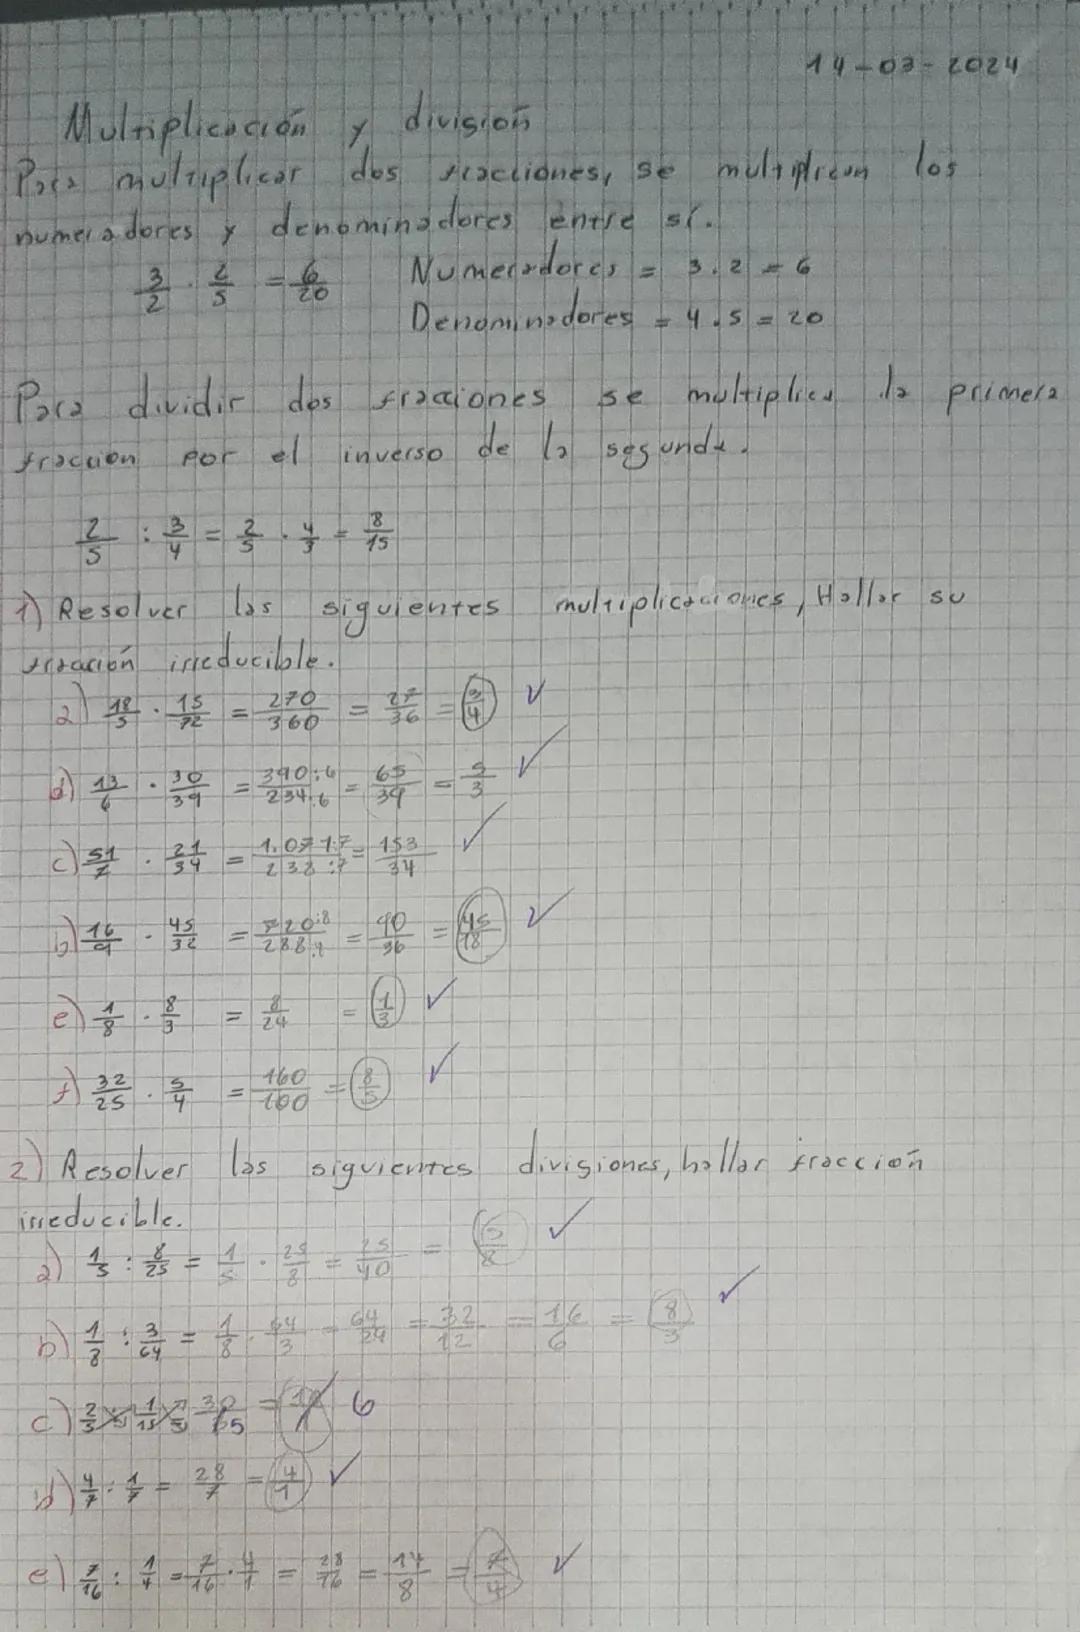 14-03-2024
Multiplicación y división
Para multiplicar dos fracciones, se multiplican los
numeradores y denominadores entre sí.
3/2 . 2/5 = 6/20 Numeradores = 3.2 = 6
Denominadores = 4.5 = 20
Para dividir dos fracciones se multiplica la primera
fracción por el inverso de la segunda.
2/5 : 3/4 = 2/5 . 4/3 = 8/15
1) Resolver las siguientes multiplicaciones, Hallar su
fracción irreducible.
a) 18/5 . 15/72 = 270/360 = 27/36 = 3/4 ✓
d) 13/6 . 30/39 = 390:6/234:6 = 65/39 = 5/3 ✓
c) 51/7 . 21/34 = 1.071:7/238:7 = 153/34 ✓
b) 16/9 . 45/32 = 720:8/288: = 90/36 = 45/18 ✓
e) 1/8 . 8/3 = 8/24 = 1/3 ✓
f) 32/25 . 5/4 = 160/100 = 8/5 ✓
2) Resolver las siguientes divisiones, hallar fracción
irreducible.
a) 1/5 : 8/25 = 1/5 . 25/8 = 25/40 = 5/8 ✓
b) 1/8 : 3/64 = 1/8 . 64/3 = 64/24 = 32/12 = 16/6 = 8/3 ✓
c) 2/3 1/15 30/5 = 6
d) 4/7 : 1/7 = 28/7 = 4/1 ✓
e) 7/16 : 1/4 = 7/16 . 4/1 = 28/16 = 14/8 = 7/4 ✓